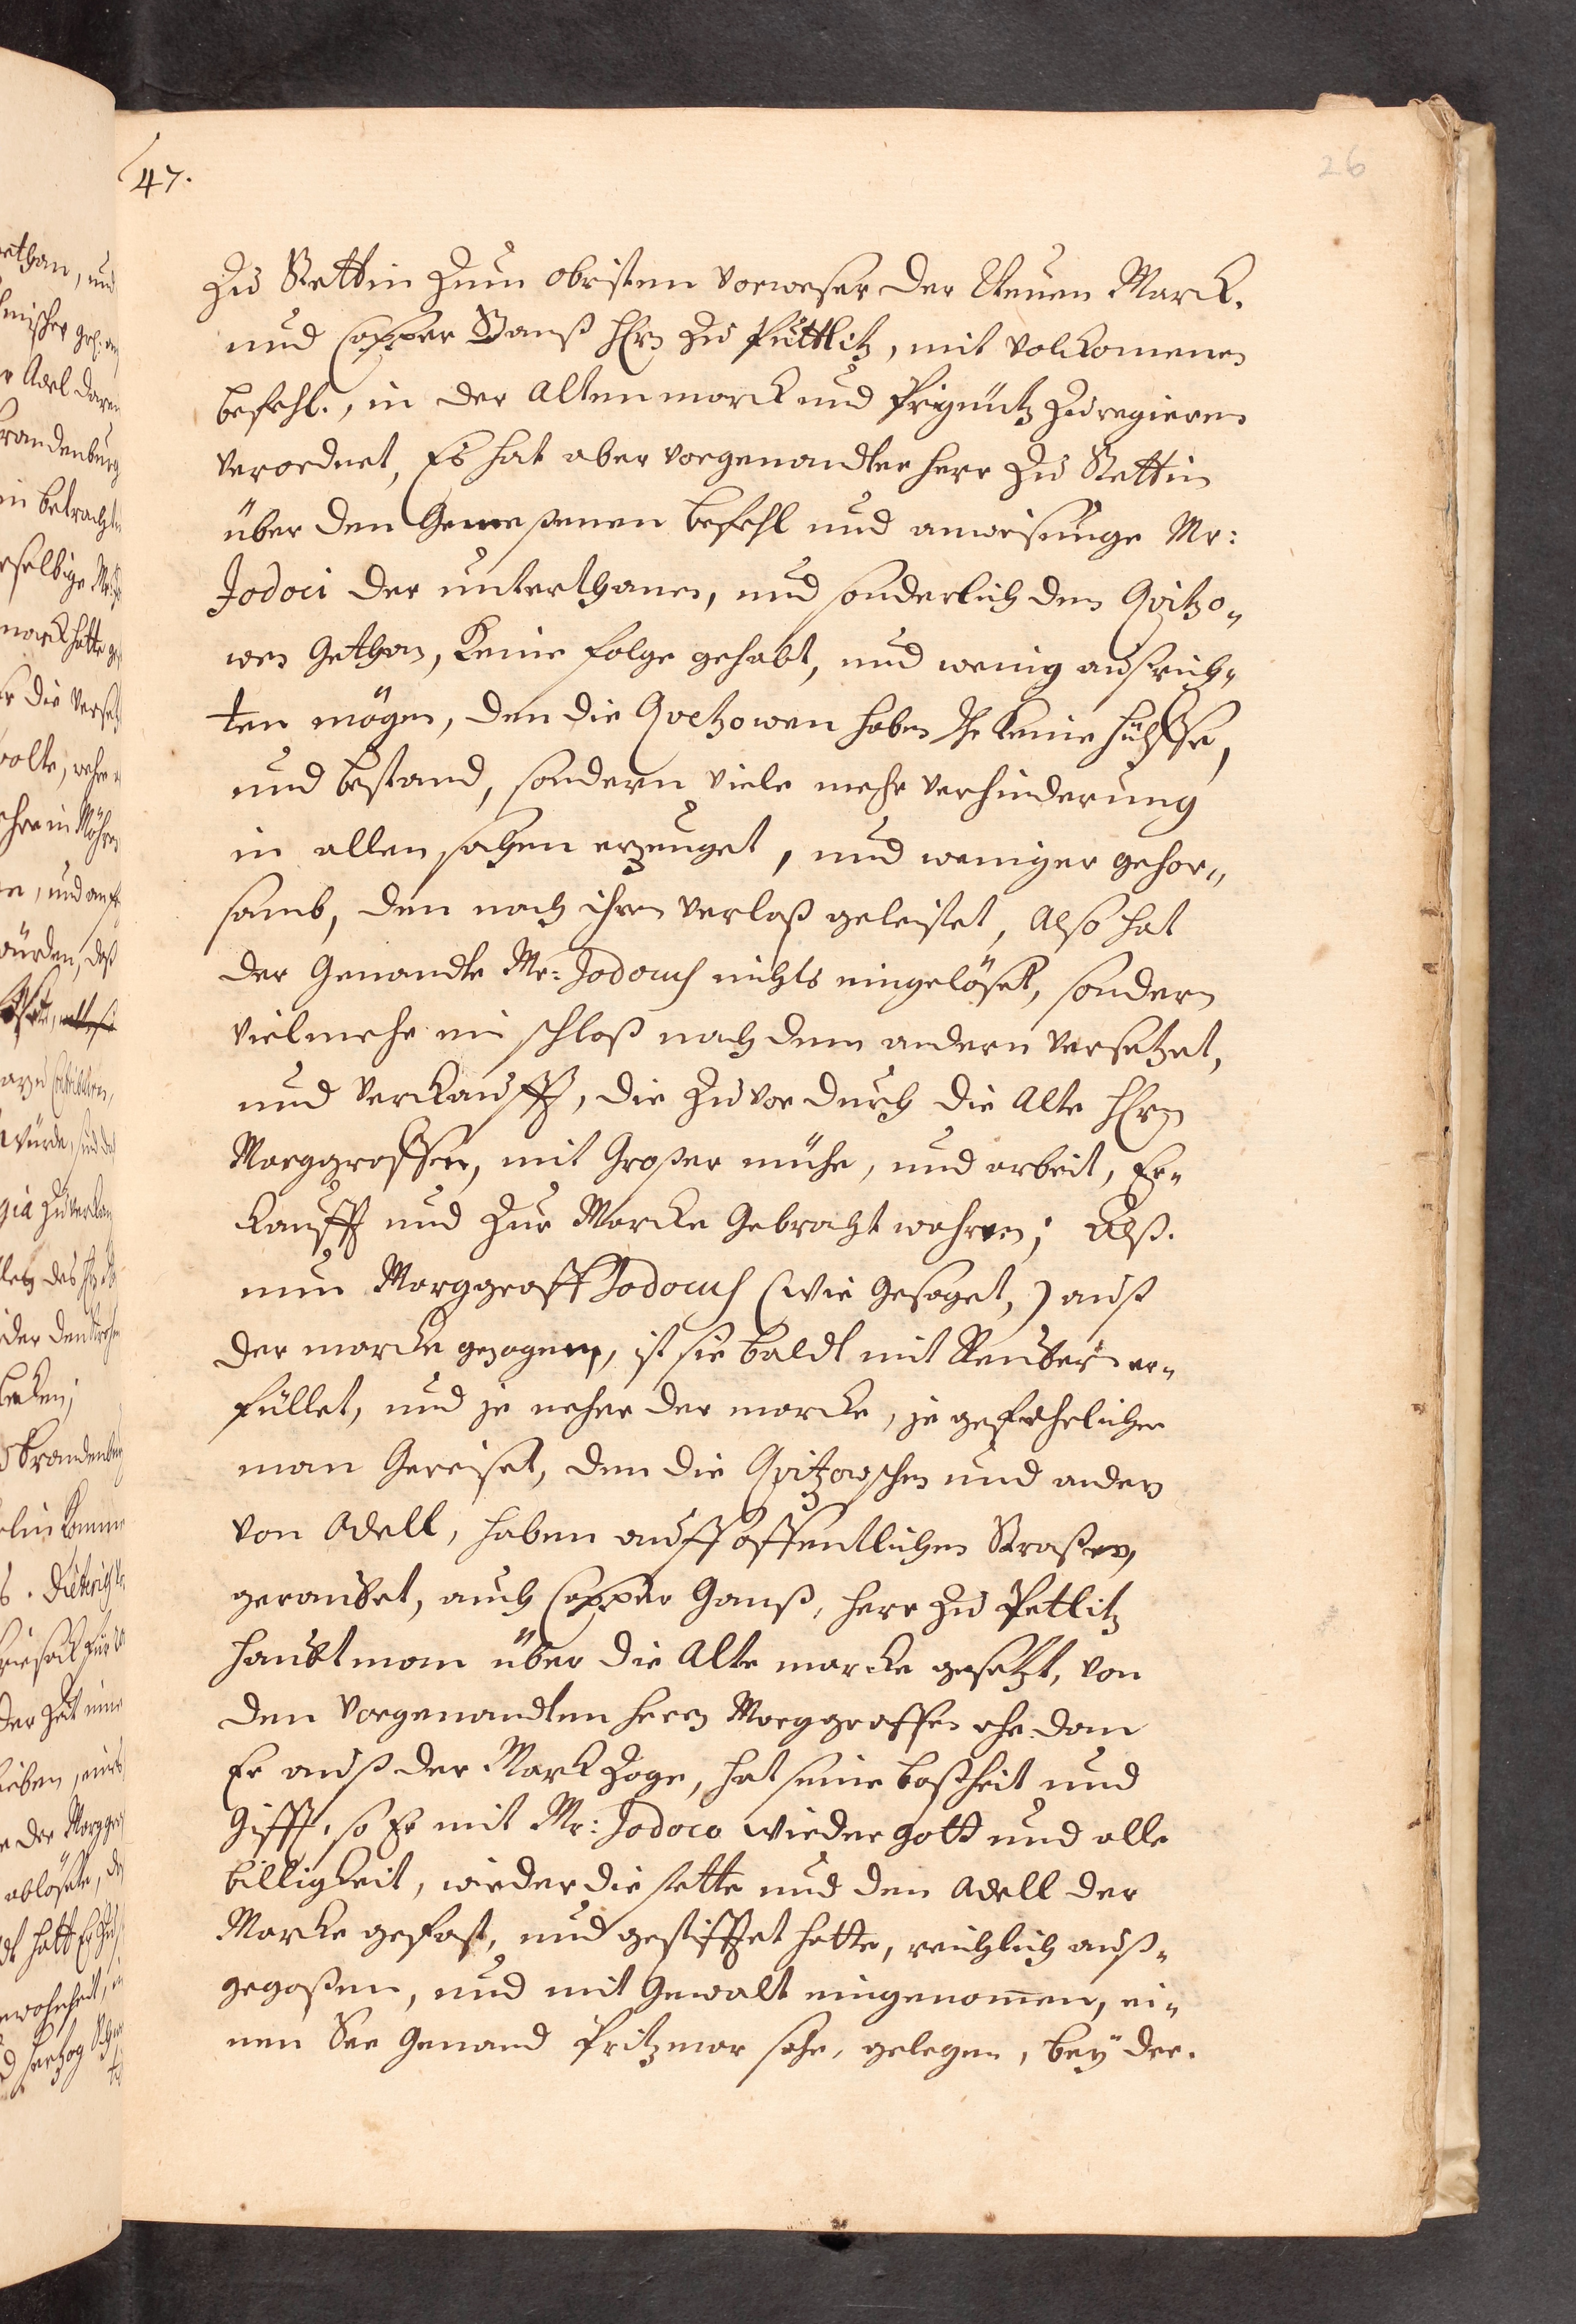 47.
26
Zu Stettin Zum obristen Vorweser der Neuen Marck.
und Casper Ganß HErn Zu Püttlitz, mit Volckomenen
befehl., in der Alten marck und Prignitz Zu regieren
verordnet, Es hat aber vorgenandter Herr Zu Stettin
über den Gemeßenen befehl und anweisunge Mr:
Jodoci der unterthanen, und sonderlich den Qvitzo„
wen Gethan, Keine folge gehabt, und wenig außrich„
ten mögen, den die Qvetzowen haben Ihr Keine hülffe,
und bestand, sondern viele mehr verhinderung
in allen sachen erzeuget, und weniger gehor„
samb, den nach ihren verlaß geleistet, Also hat
der Genandte Mr: Jodocus nichts eingelöset, sondern
vielmehr ein schloß nach dem andern versetzet,
und verkaufft, die Zuvor durch die Alte HErn
Marggraffen, mit Großer mühe, und arbeit, Er„
kaufft und Zur Marcke Gebracht wahren; Alß.
nun Marggraff Jodocus (wie Gesaget,) auß
der marcke gezogen, ist sie baldt mit Reuber er„
füllet, und je neher der marcke, je gefehrlicher
man Gereiset, den die Qvitzowschen und ander
von Adell, haben auff offentlichen Straßen,
geraubet, auch Casper Ganß, Herr Zu Petlitz
Haubtman über die Alte marcke gesetzt, von
den vorgenandten Herrn Marggraffen ehe dan
Er auß der Marck Zoge, hat seine boßheit und
Gifft, so Er mit Mr: Jodoco wieder gott und alle
billigkeit, wieder die stette und den Adell der
Marcke gefast, und gestifftet hette, reichlich auß„
gegoßen, und mit Gewalt eingenommen, ei„
nen See Genand Pritzmar sehe, gelegen, bey der.